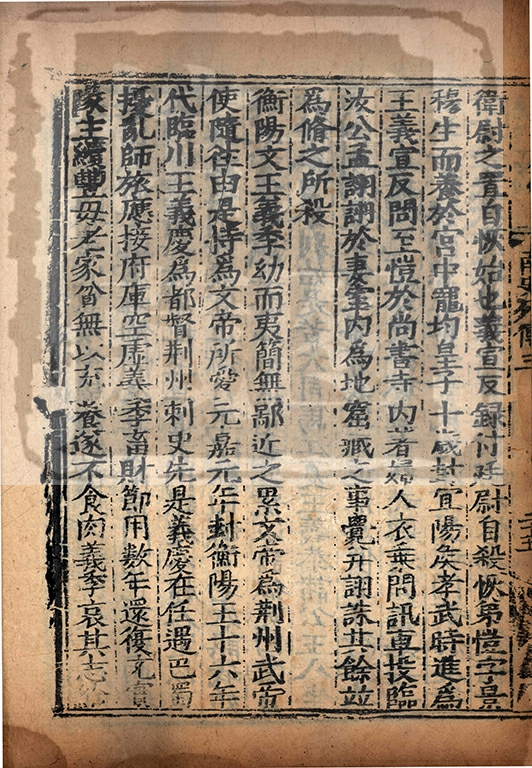 衛尉之置自恢始也義宣反録付廷尉自殺恢弟愷字景
穆生而養於宮中寵均皇子十歳封宜陽矦孝武時進為
王義宣反問至愷於尚書寺内着婦人衣乗問訊車投臨
汝公孟詡詡於妻室内為地窟藏之事覺并詡誅其餘並
為脩之所殺
衡陽文王義季幼而夷簡無鄙近之累文帝為荆州武帝
使隨往由是特為文帝所愛元嘉元年封衡陽王十六年
代臨川王義慶為都督荆州刺史先是義慶在任遇巴蜀
擾乱師旅應接府庫空虚義季畜財節用數年還復充實
隊主續豐母老家貧無以充養遂不食肉義季哀其志給